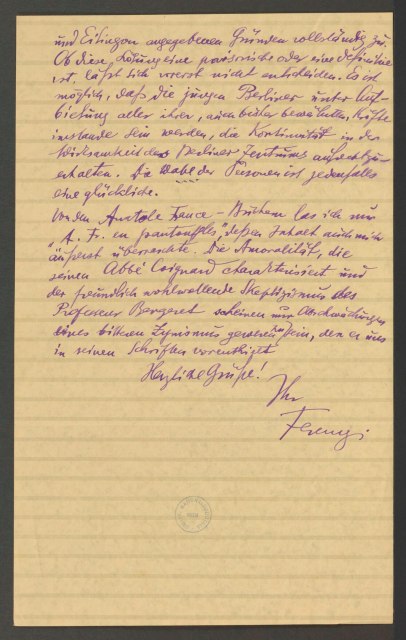 und Eitingon angegebenen Gründen vollständig zu.
Ob diese Lösung eine provisorische oder eine definitive
ist, läßt sich vorerst nicht entscheiden. Es ist
möglich, daß die jungen Berliner unter Auf-
bietung aller ihrer, auch bisher bewährten, Kräfte
imstande sein werden, die Kontinuität in der
Wirksamkeit des Berliner Zentrums aufrechtzu-
erhalten. Die Wahl der Personen ist jedenfalls
eine glückliche.
Von den Anatole France-Büchern las ich nur
"A. Fr. en pantoufles", dessen Inhalt auch mich
äußerst überraschte. Die Amoralität, die
seinen Abbé Coignard charakterisiert und
der freundlich wohlwollende Skeptizismus des
Professeur Bergeret scheinen nur Abschwächungen
eines bitteren Zynismus gewesen zu sein, den er uns
in seinen Schriften vorenthielt
Herzliche Grüße!
Ihr
Ferenczi